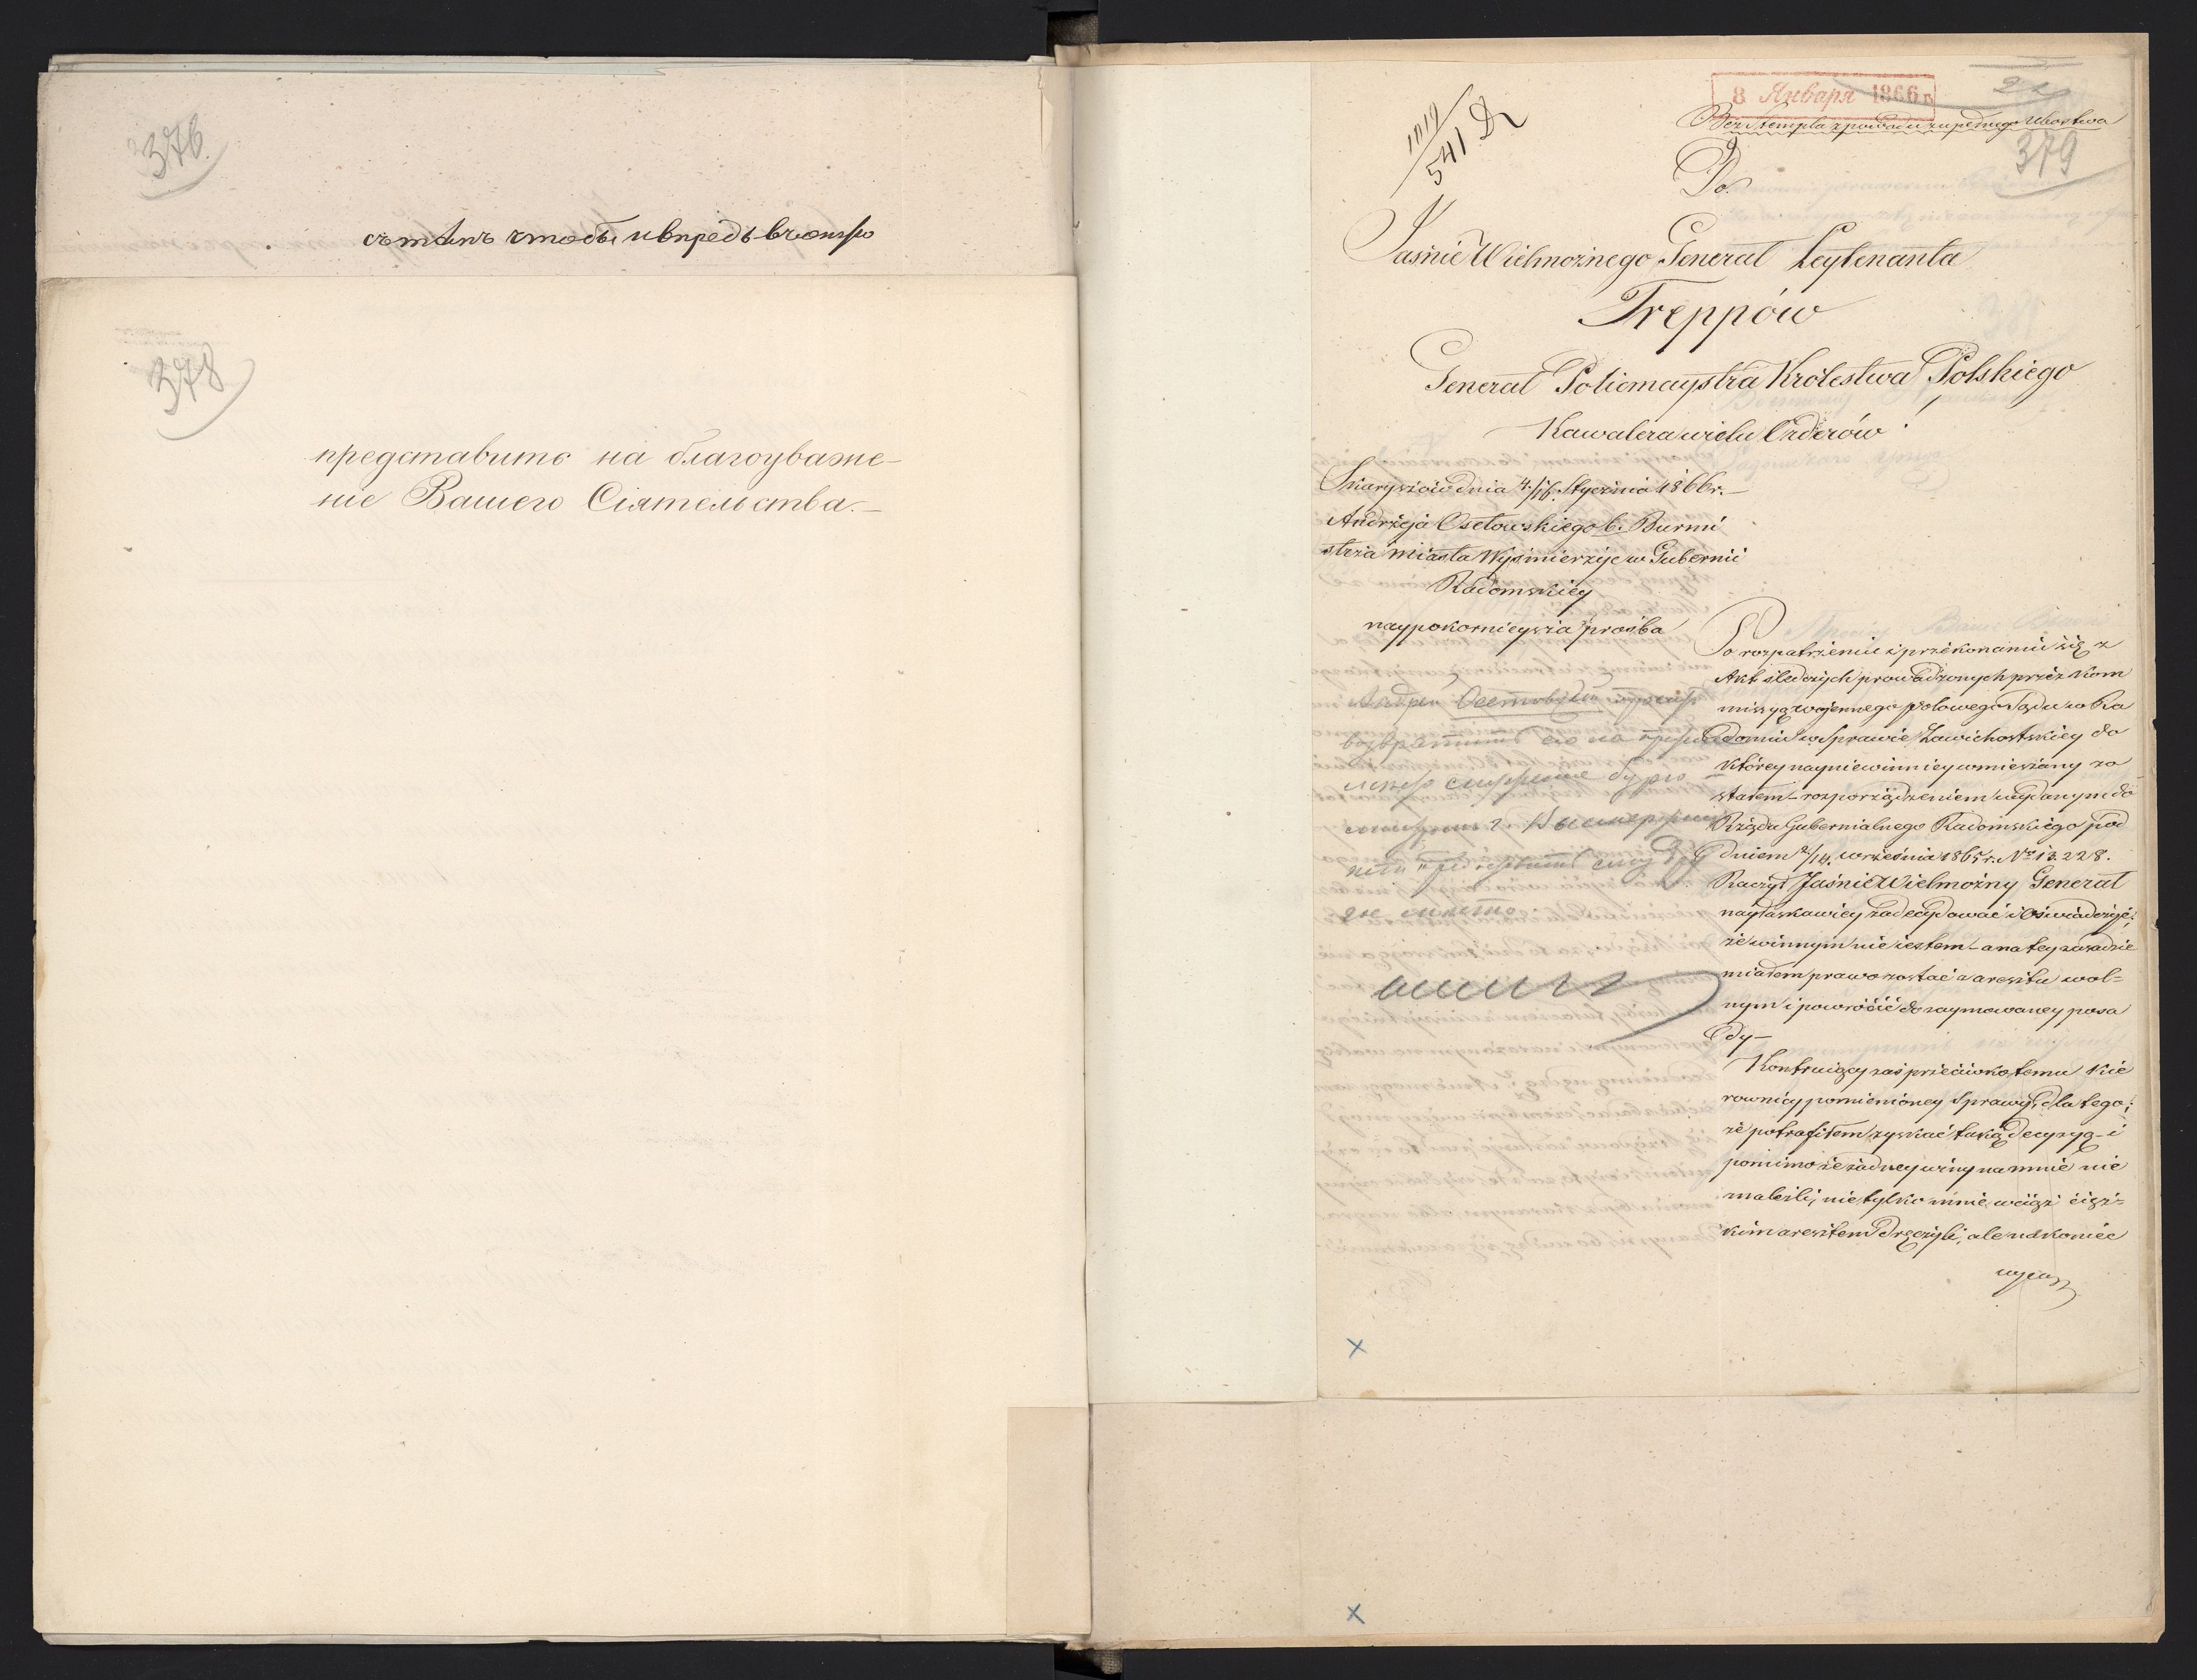 376
съ тѣмъ чтобы и впредь
378
представить на благоуваже-
ніе Вашего Сіятельства.–
8 Января 1866 г.
Bez stempla z powodu zupełnego ubostwa
1019
541
379
Do.
Jaśnie Wielmożnego Generał Leytenanta
Treppów
Generał Policmaystra Królestwa Polskiego
Kawalera wielu Orderów
Skaryszów dnia 4/16 Stycznia 1866 r.–
Andrzeja Osełowskiego b. Burmi
strza miasta Wyśmierzyc w Gubernii
Radomskiey
naypokornieysza prośba
Андрей проситъ
возвратить его на
г.
ему
Po rozpatrzeniu i przekonaniu się z
Akt śledczych prowadzonych przez Kom
missyą wojennego polowego Sądu w Ra
domiu w Sprawie Zawichostskiey do
którey nayniewinniey wmieszany zo
stałem – rozporządzeniem wydanym do
Rządu Gubernialnego Radomskiego pod
dniem 2/14 września 1865 r. Nº 13.228.
Raczył Jaśnie Wielmożny Generał
nayłaskawiey zadecydować i Oświadczyć;
że winnym nie jestem – a na tey zasadzie
miałem prawo zostać z aresztu wol=
nym i powrócić do zaymowaney posa
dy –
Kontruiący zaś przeciwko temu Kie
rownicy pomienioney Sprawy, dla tego;
że potrafiłem zyskać taką decyzyą – i
pomimo że żadney winy na mnie nie
znaleźli, nie tylko mnie wciąż cięż=
kim aresztem dręczyli, ale nakoniec